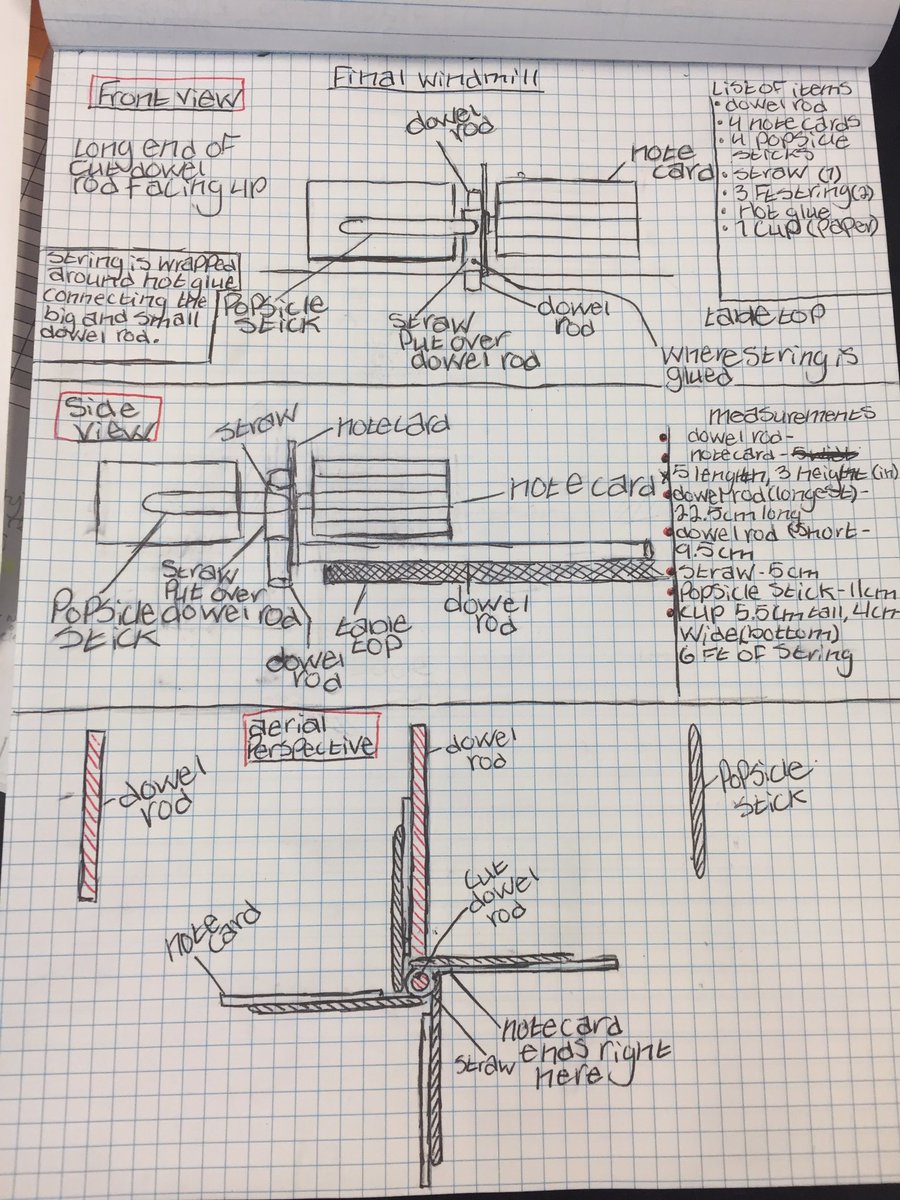 Final windmill
Front view
Long end of
cut dowel
rod facing up
String is wrapped
around hot glue
connecting the
big and small
dowel rod.
dowel
rod
note
card
Popsicle
stick
Straw
Put over
dowel rod
dowel
rod
Where string is
glued
List of items
• dowel rod
• 4 note cards
• 4 Popsicle
sticks
• Straw (1)
• 3 Ft string(2)
• Hot glue
• 1 cup (Paper)
table top
Side
view
Straw
notecard
note card
Popsicle
stick
Straw
Put over
dowel rod
dowel
rod
table
top
dowel
rod
measurements
dowel rod-
notecard-
5 length, 3 height (in)
dowel rod (longest)-
22.5cm long
dowel rod (short-
9.5cm
Straw-5cm
Popsicle stick-11cm
cup 5.5cm tall, 4cm
wide(bottom)
6 Ft of string
aerial
Perspective
dowel
rod
dowel
rod
Popsicle
stick
cut
dowel
rod
note
card
notecard
ends right
here
straw